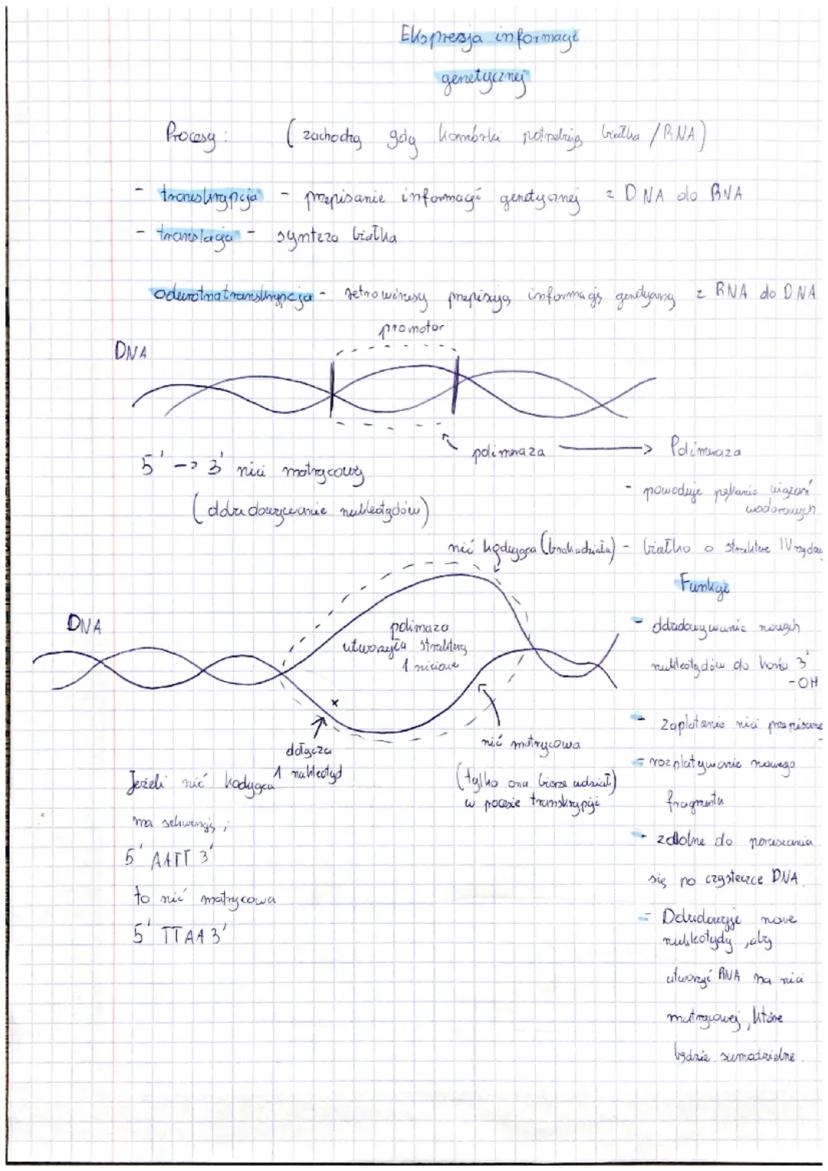 Ekspresja informacji
genetycznej
Procesy: (zachodzą gdy komórki potrzebują białka / RNA)
- transkrypcja - przepisanie informacji genetycznej z DNA do RNA
- translacja - synteza białka
odwrotna transkrypcja - retrowirusy przepisują informację genetyczną z RNA do DNA
promotor
DNA
polimeraza → Polimeraza
5' -> 3' nici matrycowej
(dobudowywanie nukleotydów)
- powoduje pękanie wiązań
wodorowych
nić kodująca (brak udziału)
- białko o strukturze IV rzędow
Funkcje
DNA
polimeraza
utworzyła strukturę
1 niciową
x
dołącza
1 nukleotyd
nić matrycowa
(tylko ona bierze udział)
w procesie transkrypcji
- dobudowywanie nowych
nukleotydów do końca 3'
-OH
- zaplatanie nici przepisanej
- rozplatywanie nowego
fragmentu
- zdolne do poruszania
się po cząsteczce DNA.
- Dobudowuje nowe
nukleotydy, aby
utworzyć RNA na nici
matrycowej, które
będzie samodzielne.
Jeżeli nić kodująca
ma sekwencję;
5' AATT 3'
to nić matrycowa
5' TTAA 3'